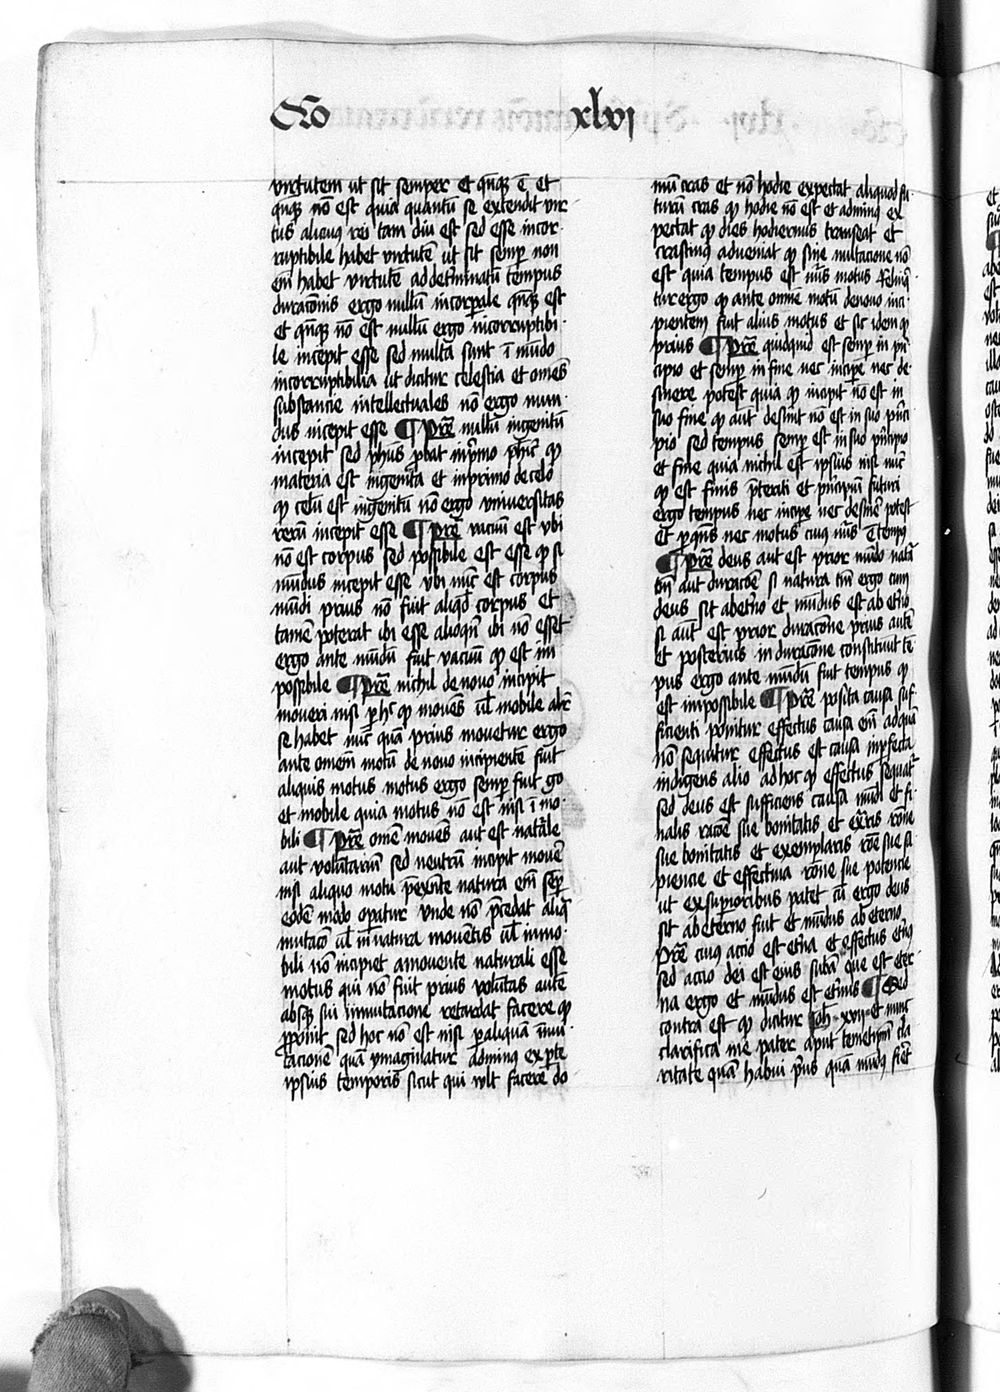 Qo xlvj
virtutem ut sit semper et qn̄qꝫ ē et
qn̄qꝫ nō est quia quantū se extendit vir
tus alicuiꝰ rei tam diu est sed esse incor
ruptibile habet virtutē ut sit semꝑ non
em̄ habet virtutē ad det̄minatū tempus
duracōnis ergo nullū incorp̄ale qn̄qꝫ est
et qn̄qꝫ nō est nullū ergo incorruptibi
le incepit esse sed multa sunt ī mūdo
incorruptibilia ut dicitur celestia et omēs
substancie intellectuales nō ergo mun
dus incepit esse ¶ Pret̄ nullū ingenitū
incepit sed ph̄us ꝓbat in pͥmo ph̄ic̄ ꝙ
materia est ingenita et in primo de celo
ꝙ celū est ingenitū nō ergo universitas
rerū incepit esse ¶ Pret̄ vacuū est vbi
nō est corpus sed possibile est esse ꝙ si
mūdus incepit esse vbi nūc est corpus
mūdi prius nō fuit aliqd̄ corpus et
tamē poterat ibi esse alioqn̄ ibi nō esset
ergo ante mūdū fuit vacuū ꝙ est im
possibile ¶ Pret̄ nichil de novo incipit
moveri nisi ꝑ hͦ ꝙ movēs vl̄ mobile alit̄
se habet nūc quā prius movetur ergo
ante omem̄ motū de novo incipientē fuit
aliquis motus motus ergo semꝑ fuit g̊o
et mobile quia motus nō est nisi ī mo
bili ¶ Pret̄ omē movēs aut est natᵃle
aut voluntariū sed neutrū incipit movē
nisi aliquo motu p̄exn̄te natura em̄ semꝑ
eodē modo oꝑatur vnde nō p̄cedat aliqͣ
mutacō vl̄ in natura movētis vl̄ in mo
bili nō incipiet a movente naturali esse
motus qui nō fuit prius volūtas autē
absqꝫ sui inmutacione retardat facere ꝙ
ꝓponit sed hoc nō est nisi ꝑ aliquā inmu
tacionē quā ymaginatur ad minꝰ ex ꝑte
ipsius temporis sicut qui vult facere do
mū cras et nō hodie expectat aliquod fu
turū cras ꝙ hodie nō est et ad minꝰ ex
pectat ꝙ dies hodiernus transeat et
crastinꝰ adveniat ꝙ sine mutacione nō
est quia tempus est nūs motus relinqͥ
tur ergo ꝙ ante omne motū de novo inci
pientem fuit alius motus et sic idem ꝙ
prius ¶ Pret̄ quidquid est semꝑ in pͥn
cipio et semꝑ in fine nec incipe nec de
sinere potest quia ꝙ incipit nō est in
suo fine ꝙ aut̄ desinit nō est in suo pͥnci
pio sed tempus semꝑ est in suo pͥncipio
et fine quia nichil est ipsius nisi nūc
ꝙ est finis p̄teriti et pͥncipiū futuri
ergo tempus nec incipe nec desinē potest
et ꝑ qn̄s nec motus cuiꝰ nūs ē tempꝰ
¶ Pret̄ deus aut est prior mūdo natᵃ
tn̄ aut duracōe si natura tm̄ ergo cum
deus sit ab et̄no et mūdus est ab et̄no
si aut̄ est prior duracōne prius autē
et posterius in duracōne constituūt tē
pus ergo ante mūdū fuit tempus ꝙ
est impossibile ¶ Pret̄ posita causa suf
ficienti ponitur effectus causa em̄ ad quā
nō sequitur effectus est causa inꝑfecta
indigens alio ad hoc ꝙ effectus sequatᷣ
sed deus est sufficiens causa mūdi et fi
nalis racōe sue bonitatis et ex̄ris rōne
sue bonitatis et exemplaris rōe sue sa
piencie et effectiva rōne sue potencie
ut ex suꝑioribus patet cū ergo deus
sit ab eterno fuit et mūdus ab eterno
Pret̄ cuiꝰ actio est et̄na et effectus et̄nꝰ
sed actio dei est eius subā que est eter
na ergo et mūdus est et̄nus ¶ Sed
contra est ꝙ dicitur Joh̄ xvii et nunc
clarifica me pater aput temetipm̄ cla
ritate quā habui pͥus quā mūdꝰ fiēt